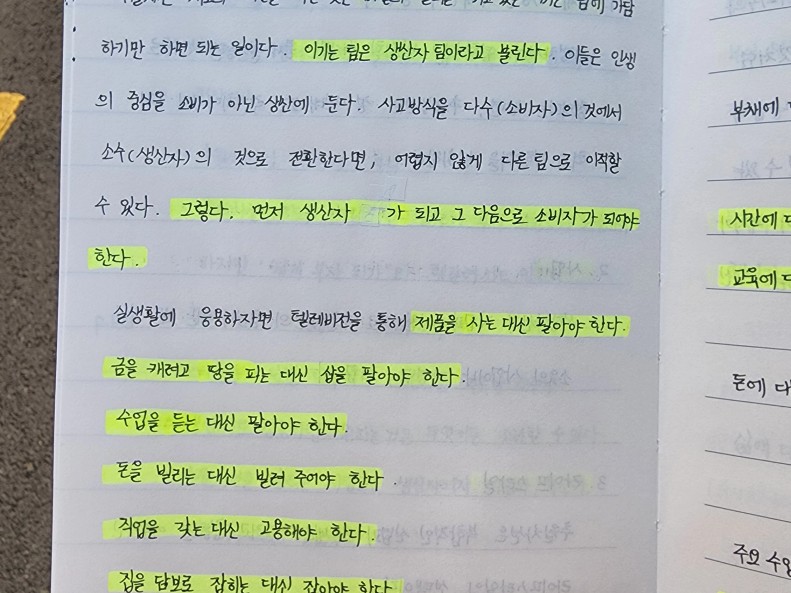 하기만 하면 되는 일이다. 이기는 팀은 생산자 팀이라고 불린다. 이들은 인생
의 중심을 소비가 아닌 생산에 둔다. 사고방식을 다수(소비자)의 것에서
소수(생산자)의 것으로 전환한다면, 어렵지 않게 다른 팀으로 이적할
수 있다. 그렇다. 먼저 생산자 가 되고 그 다음으로 소비자가 되어야
한다.
실생활에 응용하자면 텔레비전을 통해 제품을 사는 대신 팔아야 한다.
금을 캐려고 땅을 파는 대신 삽을 팔아야 한다.
수업을 듣는 대신 팔아야 한다.
돈을 빌리는 대신 빌려 주어야 한다.
직업을 갖는 대신 고용해야 한다.
집을 담보로 잡히는 대신 잡아야 한다.
부채에
시간에
교육에
돈에
주요